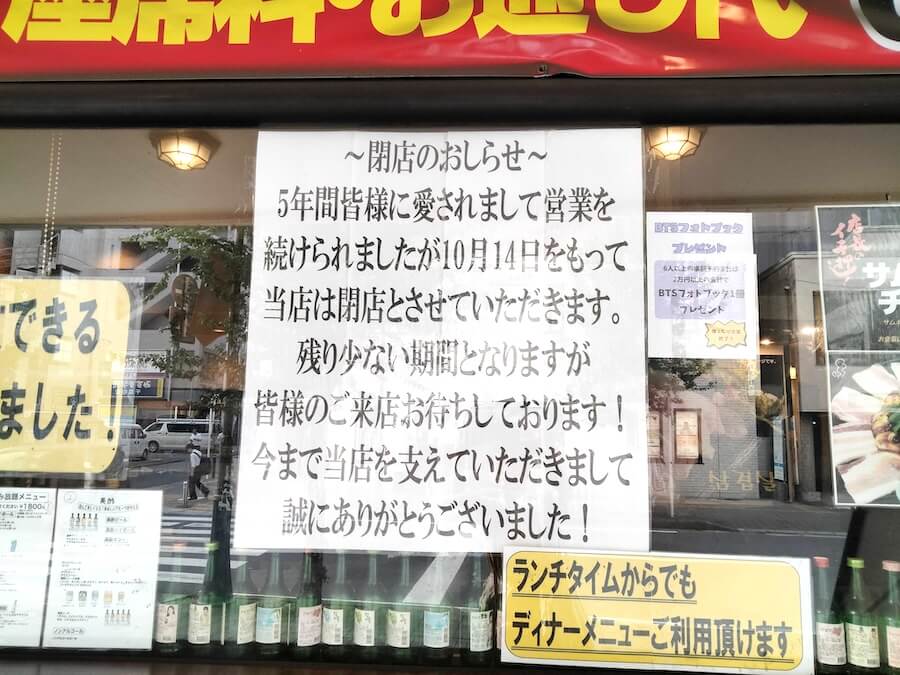 座席料・お通し代
～閉店のおしらせ～
5年間皆様に愛されまして営業を
続けられましたが10月14日をもって
当店は閉店とさせていただきます。
残り少ない期間となりますが
皆様のご来店お待ちしております！
今まで当店を支えていただきまして
誠にありがとうございました！
できる
ました！
BTSフォトブック
プレゼント
BTSフォトブック1冊
プレゼント
サム
チ
삼겹살
み放題メニュー
ノンアルコール
ランチタイムからでも
ディナーメニューご利用頂けます